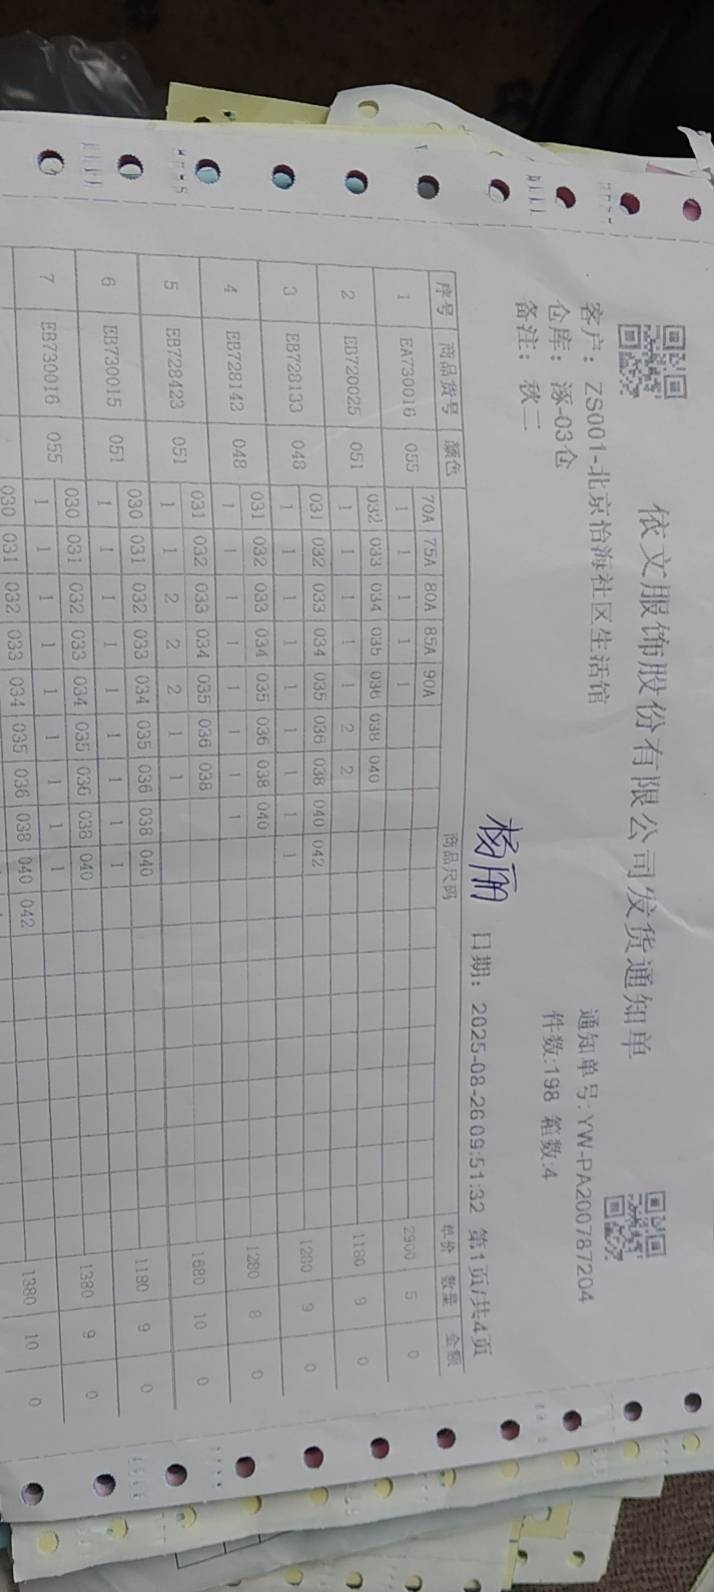 依文服饰股份有限公司发货通知单
客户：ZS001-北京怡海社区生活馆 通知单号:YW-PA200787204
仓库：涿-03仓 件数:198 箱数:4
备注：秋二
杨丽 日期：2025-08-26 09:51:32 第1页/共4页
序号 商品货号 颜色 商品尺码 单价 数量 金额
70A 75A 80A 85A 90A
1 EA730016 055 1 1 1 1 1 2900 5 0
032 033 034 035 036 038 040
2 EB720025 051 1 1 1 1 1 2 2 1180 9 0
031 032 033 034 035 036 038 040 042
3 EB728133 048 1 1 1 1 1 1 1 1 1 1280 9 0
031 032 033 034 035 036 038 040
4 EB728143 048 1 1 1 1 1 1 1 1 1280 8 0
031 032 033 034 035 036 038
5 EB728423 051 1 1 2 2 2 1 1 1680 10 0
030 031 032 033 034 035 036 038 040
6 EB730015 051 1 1 1 1 1 1 1 1 1 1180 9 0
030 031 032 033 034 035 036 038 040
7 EB730016 055 1 1 1 1 1 1 1 1 1 1380 9 0
030 031 032 033 034 035 036 038 040 042
1380 10 0